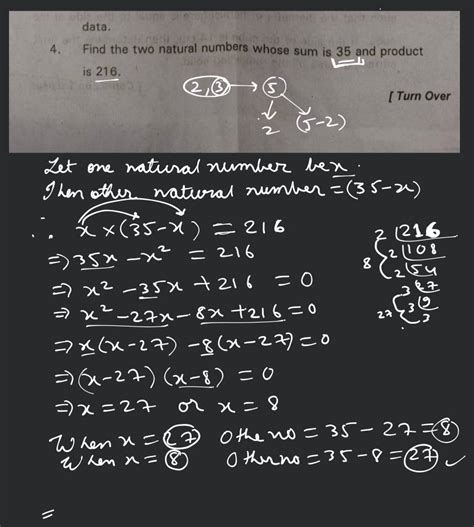 data.
4. Find the two natural numbers whose sum is 35 and product
is 216.
2, 3 → 5
2 (5-2)
[ Turn Over
Let one natural number be x.
Then other natural number = (35-x)
∴ x × (35-x) = 216
⇒ 35x - x² = 216
⇒ x² - 35x + 216 = 0
⇒ x² - 27x - 8x + 216 = 0
⇒ x(x-27) - 8(x-27) = 0
⇒ (x-27) (x-8) = 0
⇒ x = 27 or x = 8
When x = 27 Other no = 35 - 27 = 8
When x = 8 Other no = 35 - 8 = 27 ✓
=
2 216
2 108
8 2 54
3 27
27 3 9
3